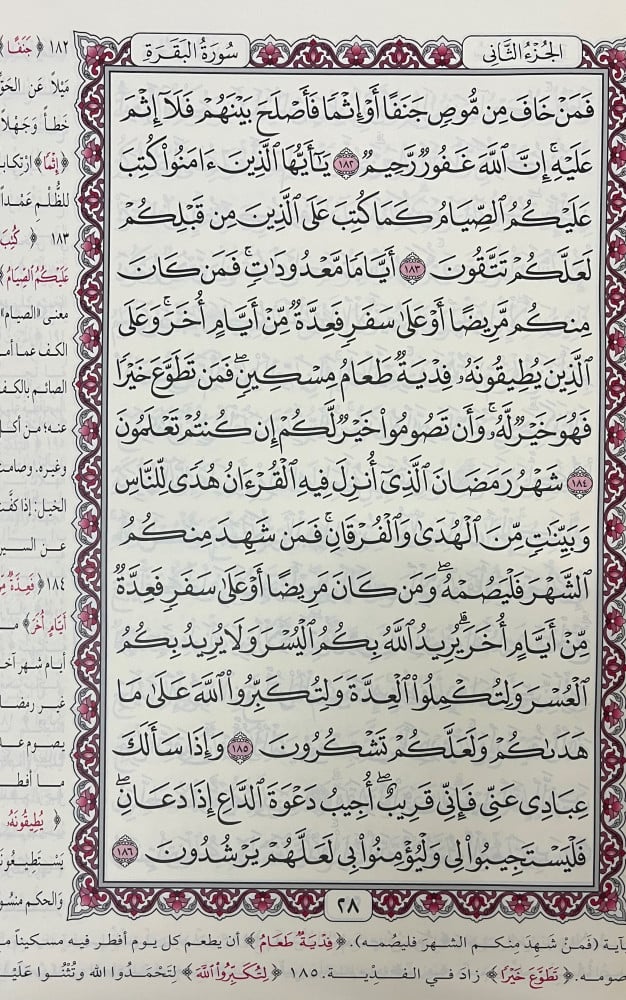 سُورَةُ البَقَرَةِ
الجُزْءُ الثَّانِي
فَمَنْ خَافَ مِن مُّوصٍ جَنَفًا أَوْ إِثْمًا فَأَصْلَحَ بَيْنَهُمْ فَلَآ إِثْمَ
عَلَيْهِۚ إِنَّ ٱللَّهَ غَفُورٌ رَّحِيمٌ ١٨٢ يَـٰٓأَيُّهَا ٱلَّذِينَ ءَامَنُوا۟ كُتِبَ
عَلَيْكُمُ ٱلصِّيَامُ كَمَا كُتِبَ عَلَى ٱلَّذِينَ مِن قَبْلِكُمْ
لَعَلَّكُمْ تَتَّقُونَ ١٨٣ أَيَّامًا مَّعْدُودَٰتٍۚ فَمَن كَانَ
مِنكُم مَّرِيضًا أَوْ عَلَىٰ سَفَرٍ فَعِدَّةٌ مِّنْ أَيَّامٍ أُخَرَۚ وَعَلَى
ٱلَّذِينَ يُطِيقُونَهُۥ فِدْيَةٌ طَعَامُ مِسْكِينٍۖ فَمَن تَطَوَّعَ خَيْرًا
فَهُوَ خَيْرٌ لَّهُۥۚ وَأَن تَصُومُوا۟ خَيْرٌ لَّكُمْ إِن كُنتُمْ تَعْلَمُونَ
١٨٤ شَهْرُ رَمَضَانَ ٱلَّذِىٓ أُنزِلَ فِيهِ ٱلْقُرْءَانُ هُدًى لِّلنَّاسِ
وَبَيِّنَـٰتٍ مِّنَ ٱلْهُدَىٰ وَٱلْفُرْقَانِۚ فَمَن شَهِدَ مِنكُمُ
ٱلشَّهْرَ فَلْيَصُمْهُۖ وَمَن كَانَ مَرِيضًا أَوْ عَلَىٰ سَفَرٍ فَعِدَّةٌ
مِّنْ أَيَّامٍ أُخَرَۗ يُرِيدُ ٱللَّهُ بِكُمُ ٱلْيُسْرَ وَلَا يُرِيدُ بِكُمُ
ٱلْعُسْرَ وَلِتُكْمِلُوا۟ ٱلْعِدَّةَ وَلِتُكَبِّرُوا۟ ٱللَّهَ عَلَىٰ مَا
هَدَىٰكُمْ وَلَعَلَّكُمْ تَشْكُرُونَ ١٨٥ وَإِذَا سَأَلَكَ
عِبَادِى عَنِّى فَإِنِّى قَرِيبٌۖ أُجِيبُ دَعْوَةَ ٱلدَّاعِ إِذَا دَعَانِۖ
فَلْيَسْتَجِيبُوا۟ لِى وَلْيُؤْمِنُوا۟ بِى لَعَلَّهُمْ يَرْشُدُونَ ١٨٦
٢٨
١٨٢ ﴿ جَنَفًا ﴾
مَيْلًا عَن الحَقِّ
خَطأً وَجَهْلًا
﴿ إِثْمًا ﴾ ارْتكابًا
للظُّلْمِ عَمْدًا
١٨٣ ﴿ كُتِبَ
عَلَيْكُمُ الصِّيَامُ ﴾
معنى «الصيام»
الكف عما
الصائم بالكف
عنه؛ من أكل
وغيره. وصامت
الخيل: إذا كفَّت
عن السير
١٨٤ ﴿ فَعِدَّةٌ مِّنْ
أَيَّامٍ أُخَرَ ﴾
أيام شهر آخر
غير رمضان
يصوم
ما أفطر
﴿ يُطِيقُونَهُ
يَسْتَطِيعُونَهُ
والحكم
بآية (فَمَنْ شَهِدَ مِنكم الشهرَ فليصُمه). ﴿ فِدْيَةٌ طَعَامُ ﴾ أن يطعم كل يوم أفطر فيه مسكيناً
صومه. ﴿ تَطَوَّعَ خَيْرًا ﴾ زادَ في الفدْيـة. ١٨٥ ﴿ لِتُكَبِّرُوا۟ اللَّهَ ﴾ لِتَحْمَدُوا الله وتُثْنُوا